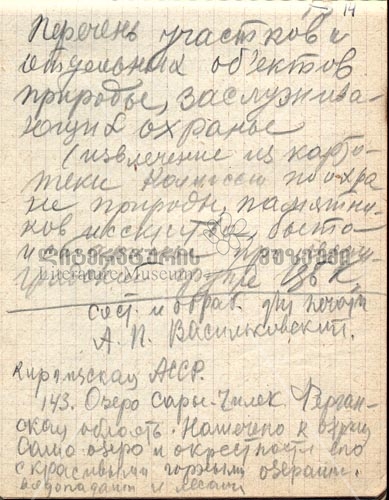 14
Перечень участков и
отдельных объектов
природы, заслужива-
ющих охраны
(извлечение из карто-
теки Комиссии по охра
не природы, памятни-
ков искусства, быта
ლიტერატურის მუზეუმი
Literature Museum
сост. и обраб. для печати
А. П. Васильковский.
Киргизская АССР.
143. Озеро Сары-Чилек. Ферган-
ская область. Намечено к охране
Само озеро и окрестности его
с красивыми горными озерами.
водопадами и лесами